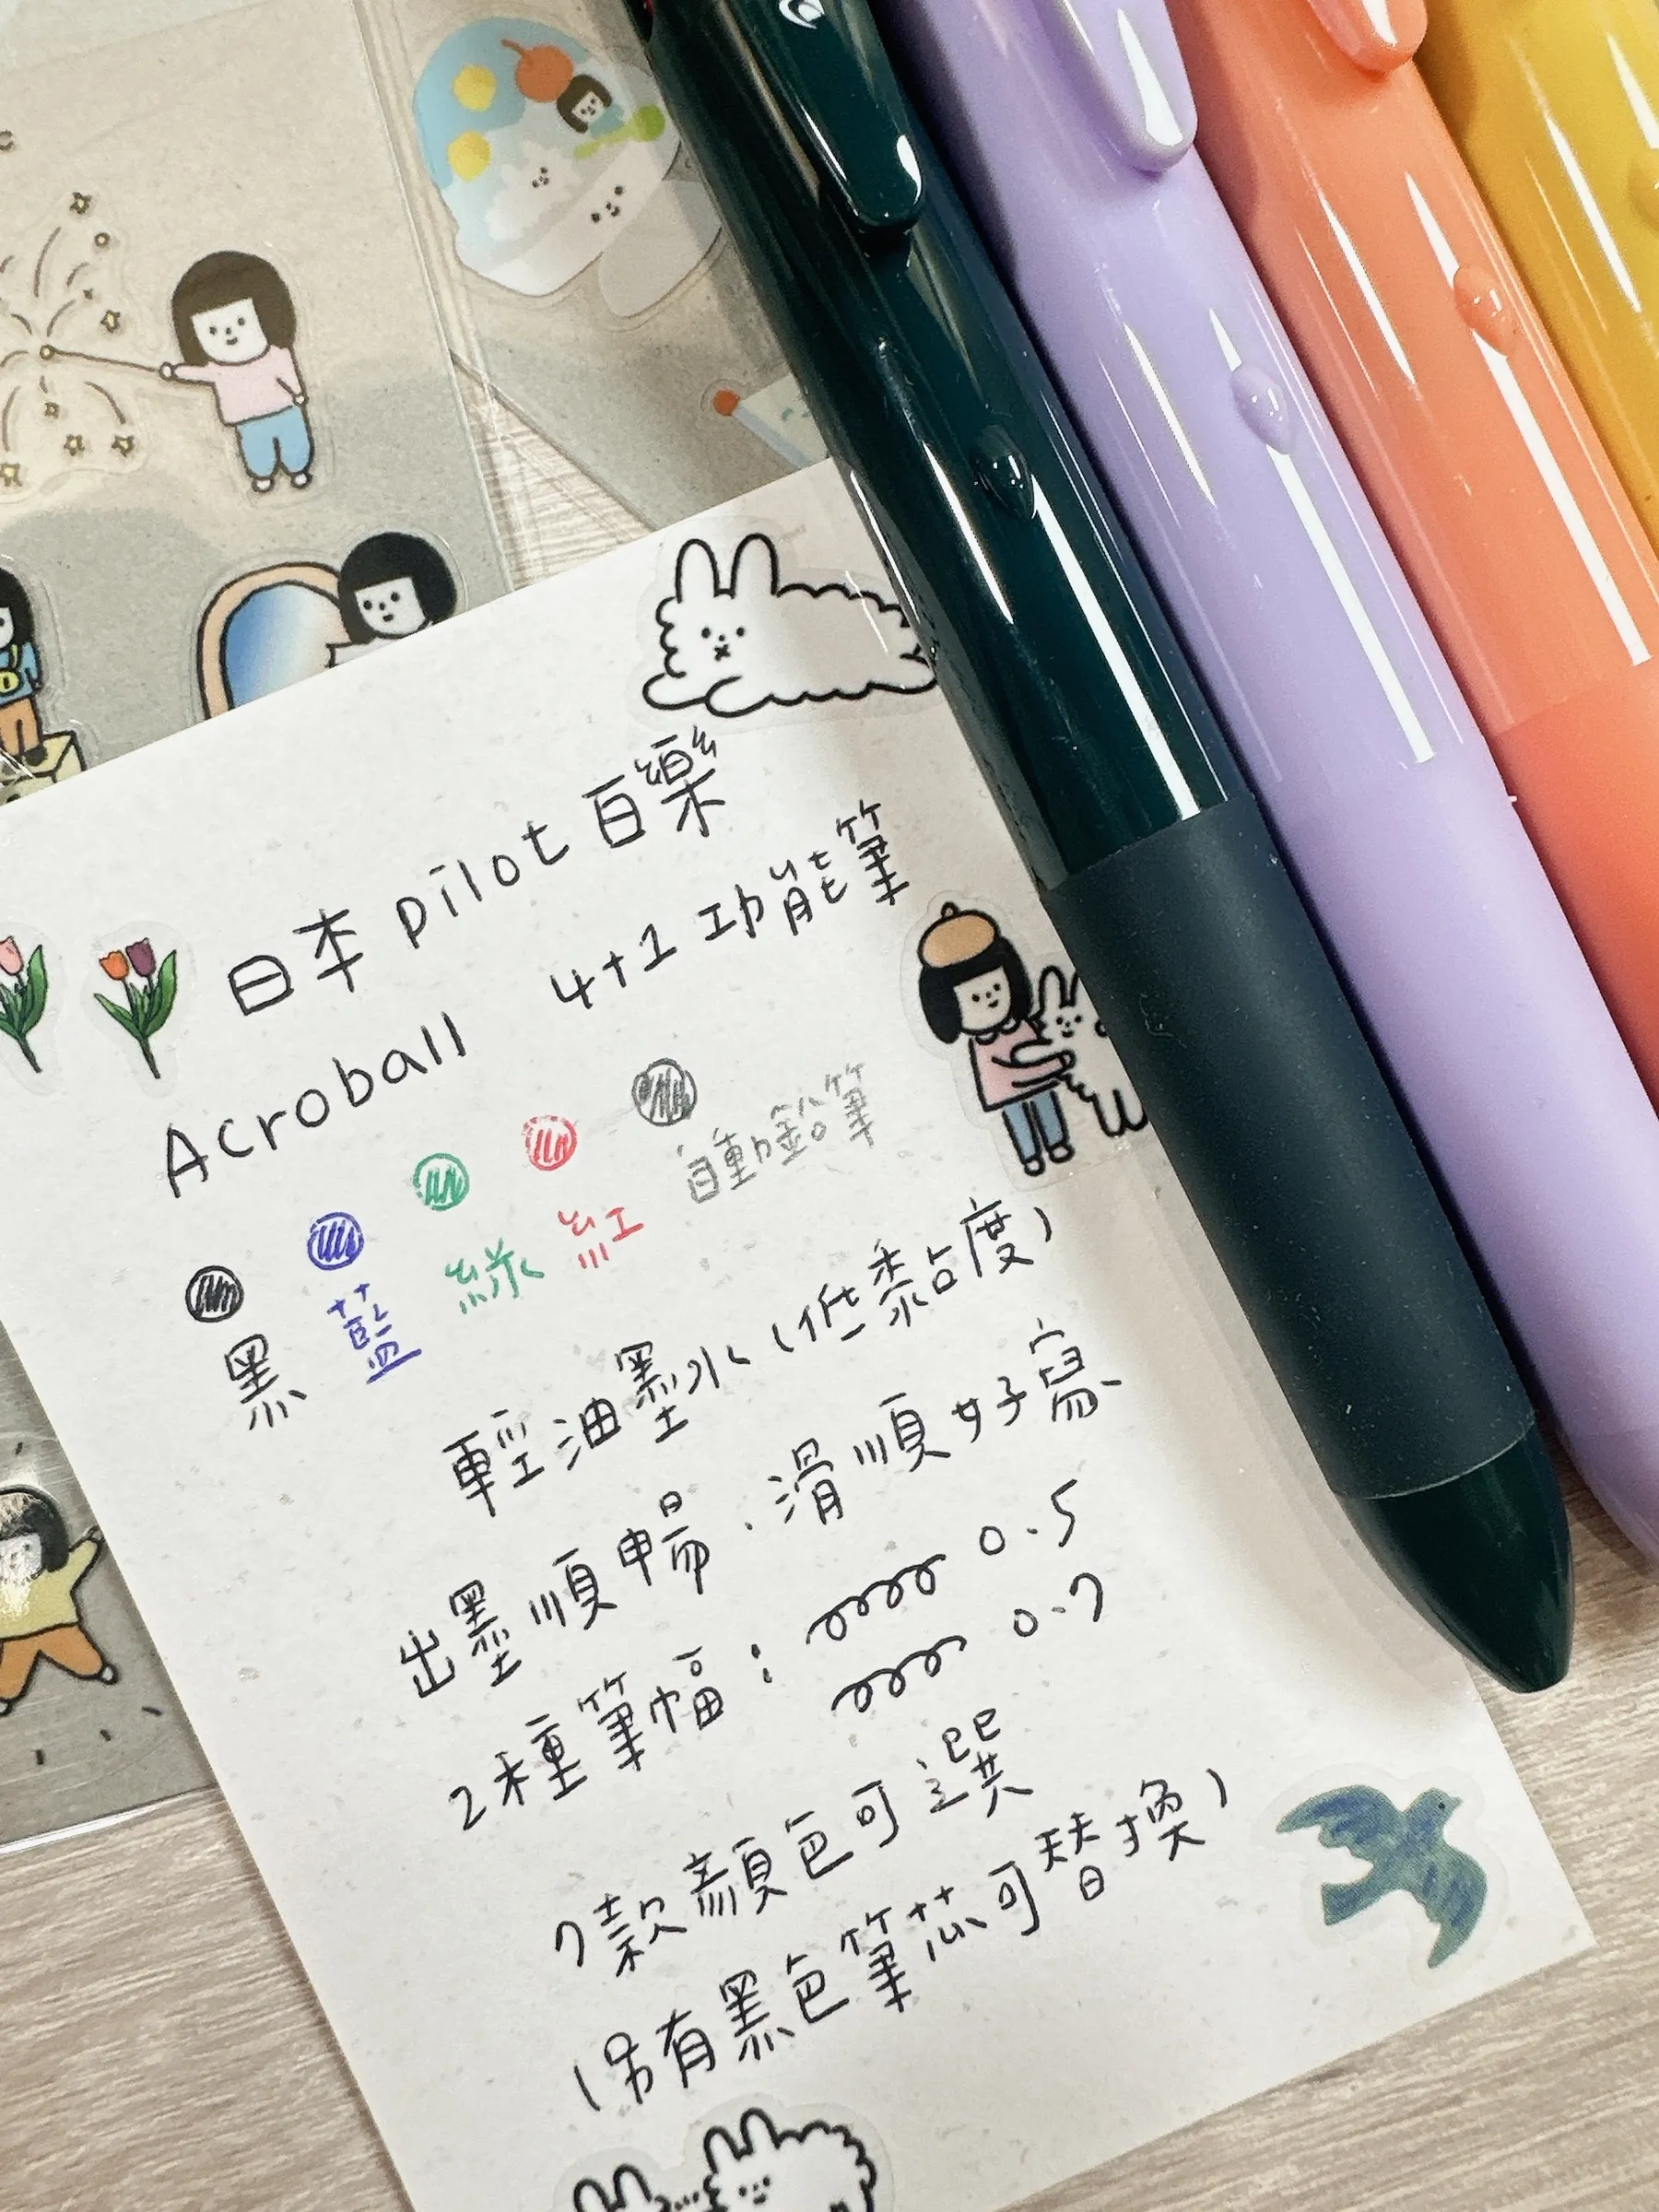 日本 pilot 百樂
Acroball 4+1 功能筆
黑 藍 綠 紅 自動鉛筆
輕油墨水（低黏度）
出墨順暢．滑順好寫
2種筆幅： 0.5
0.7
7款顏色可選
（另有黑色筆芯可替換）